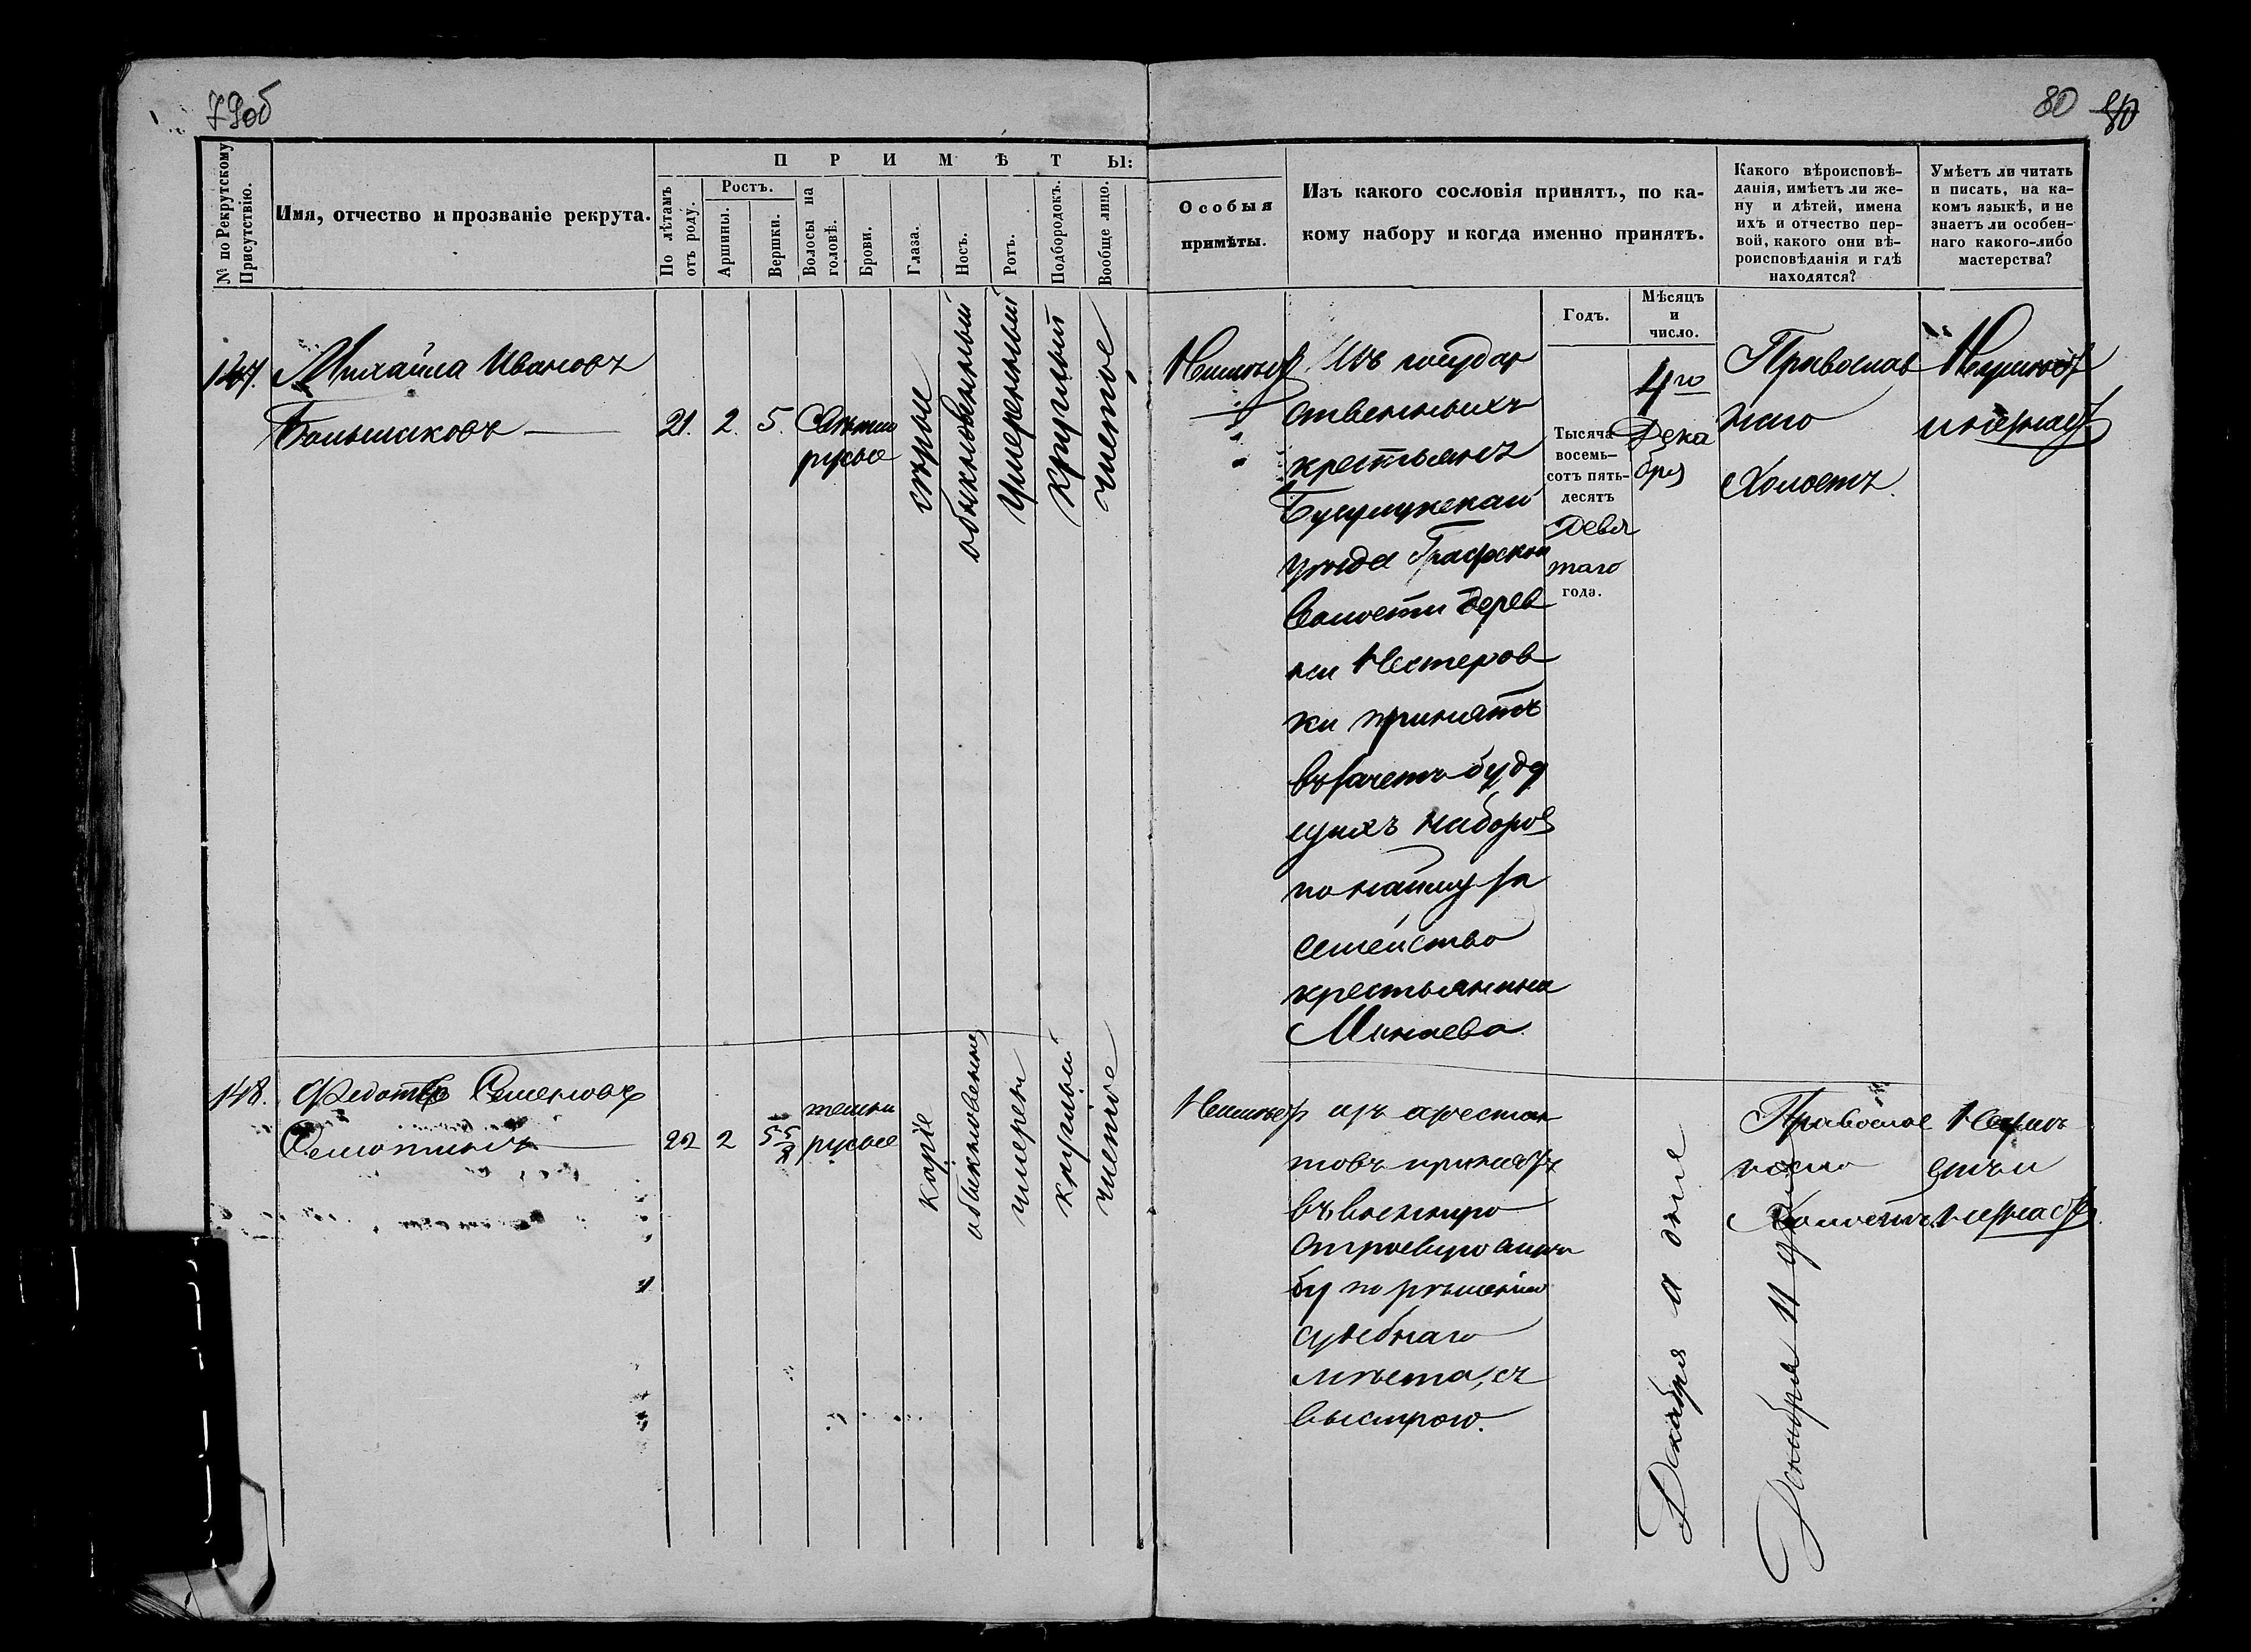 79об
80 80
№ по Рекрутскому Присутствію.
Имя, отчество и прозваніе рекрута.
ПРИМѢТЫ:
По лѣтамъ отъ роду.
Ростъ.
Аршины.
Вершки.
Волосы на головѣ.
Брови.
Глаза.
Носъ.
Ротъ.
Подбородокъ.
Вообще лицо.
Особыя
примѣты.
Изъ какого сословія принятъ, по ка-
кому набору и когда именно принятъ.
Какого вѣроисповѣ-
данія, имѣетъ ли же-
ну и дѣтей, имена
ихъ и отчество пер-
вой, какого они вѣ-
роисповѣданія и гдѣ
находятся?
Умѣетъ ли читать
и писать, на ка-
комъ языкѣ, и не
знаетъ ли особен-
наго какого-либо
мастерства?
Годъ.
Мѣсяцъ
и
число.
147.
Михайла Ивановъ
Большаковъ
21. 2. 5.
Свѣтло
русые
сѣрые
обыкновенный
умеренный
круглый
чистое
Неимѣетъ
Изъ государ
ственныхъ
крестьянъ
Бузулукскаго
уѣзда Графской
Волости дерев
ни Нестеров
ки принятъ
въ зачетъ буду
щихъ наборовъ
по найму за
семейство
крестьянина
Минаева.
Тысяча
восемь-
сотъ пять-
десятъ
девя
таго
года.
4го
Дека
бря
Православ
наго
Холостъ.
Неумѣетъ
и незнаетъ
148.
Федотъ Семеновъ
22 2
темно
русые
каріе
обыкновенный
умерен
круглый
чистое
Неимѣетъ
изъ арестан
товъ принятъ
въ военную
строевую служ
бу по рѣшенію
судебнаго
мѣста, съ
выстрою.
Декабря 4 дня
Декабря 11 дня
Православ
наго
Холостъ.
Неумѣ
етъ и
незнаетъ.